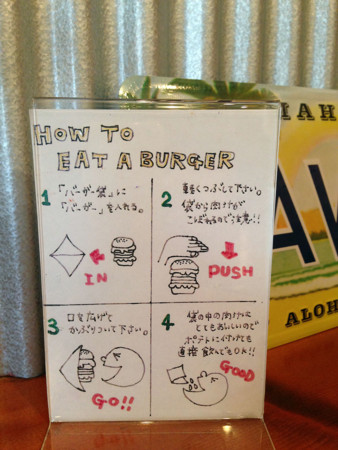 HOW TO
EAT A BURGER
1
「バーガー袋」に
「バーガー」を入れる。
IN
2
軽くつぶして下さい。
袋から肉汁が
こぼれるので注意!!
PUSH
3
口を広げて
かぶりついて下さい。
GO!!
4
袋の中の肉汁は
とてもおいしいので
ポテトに付けても
直接飲んでもOK!!
GOOD
AH
AW
ALOH